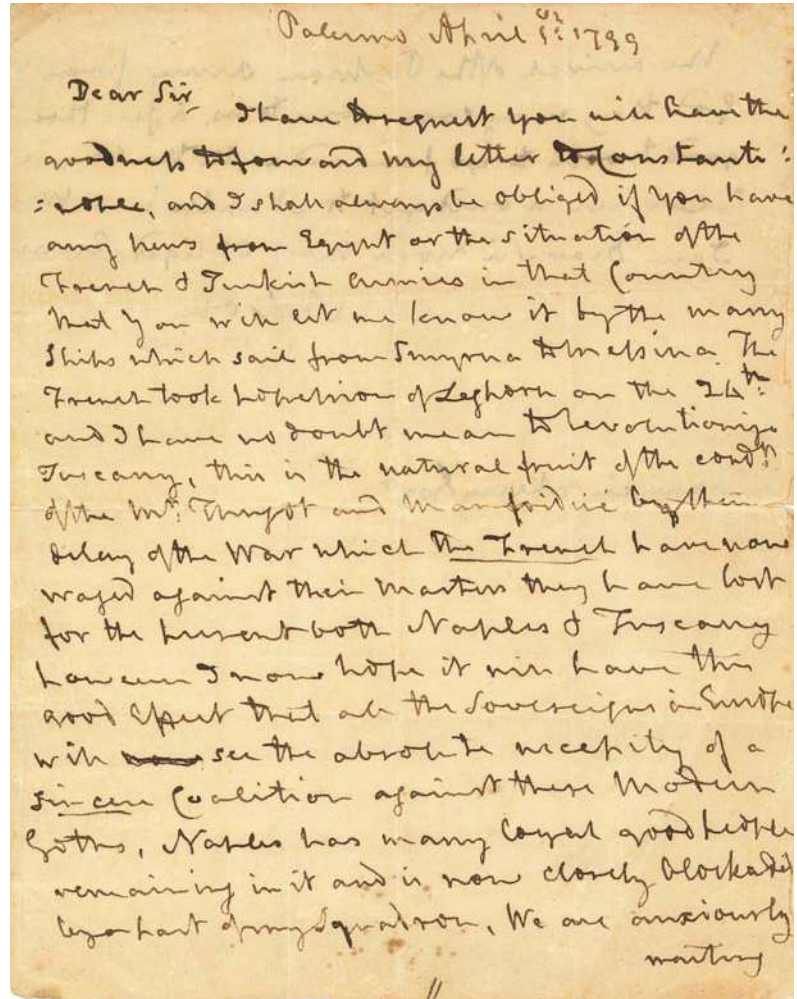 Palermo April 1st: 1799
Dear Sir,
I have to request you will have the
goodness to forward my letter to Constanti:
:nople, and I shall always be obliged if you have
any news from Egypt or the situation of the
French & Turkish Armies in that Country
that you will let me know it by the many
Ships which sail from Smyrna to Messina. The
French took possession of Leghorn on the 24th:
and I have no doubt mean to revolutionize
Tuscany, this is the natural fruit of the condt:
of the Mrs: Thugot and Manfridini by their
delay of the War which the French have now
waged against their Masters they have lost
for the present both Naples & Tuscany
however I now hope it will have this
good effect that all the Sovereigns in Europe
will see the absolute necessity of a
sincere Coalition against these Modern
Goths, Naples has many loyal good people
remaining in it and is now closely blockaded
by a part of my Squadron, We are anxiously
waiting